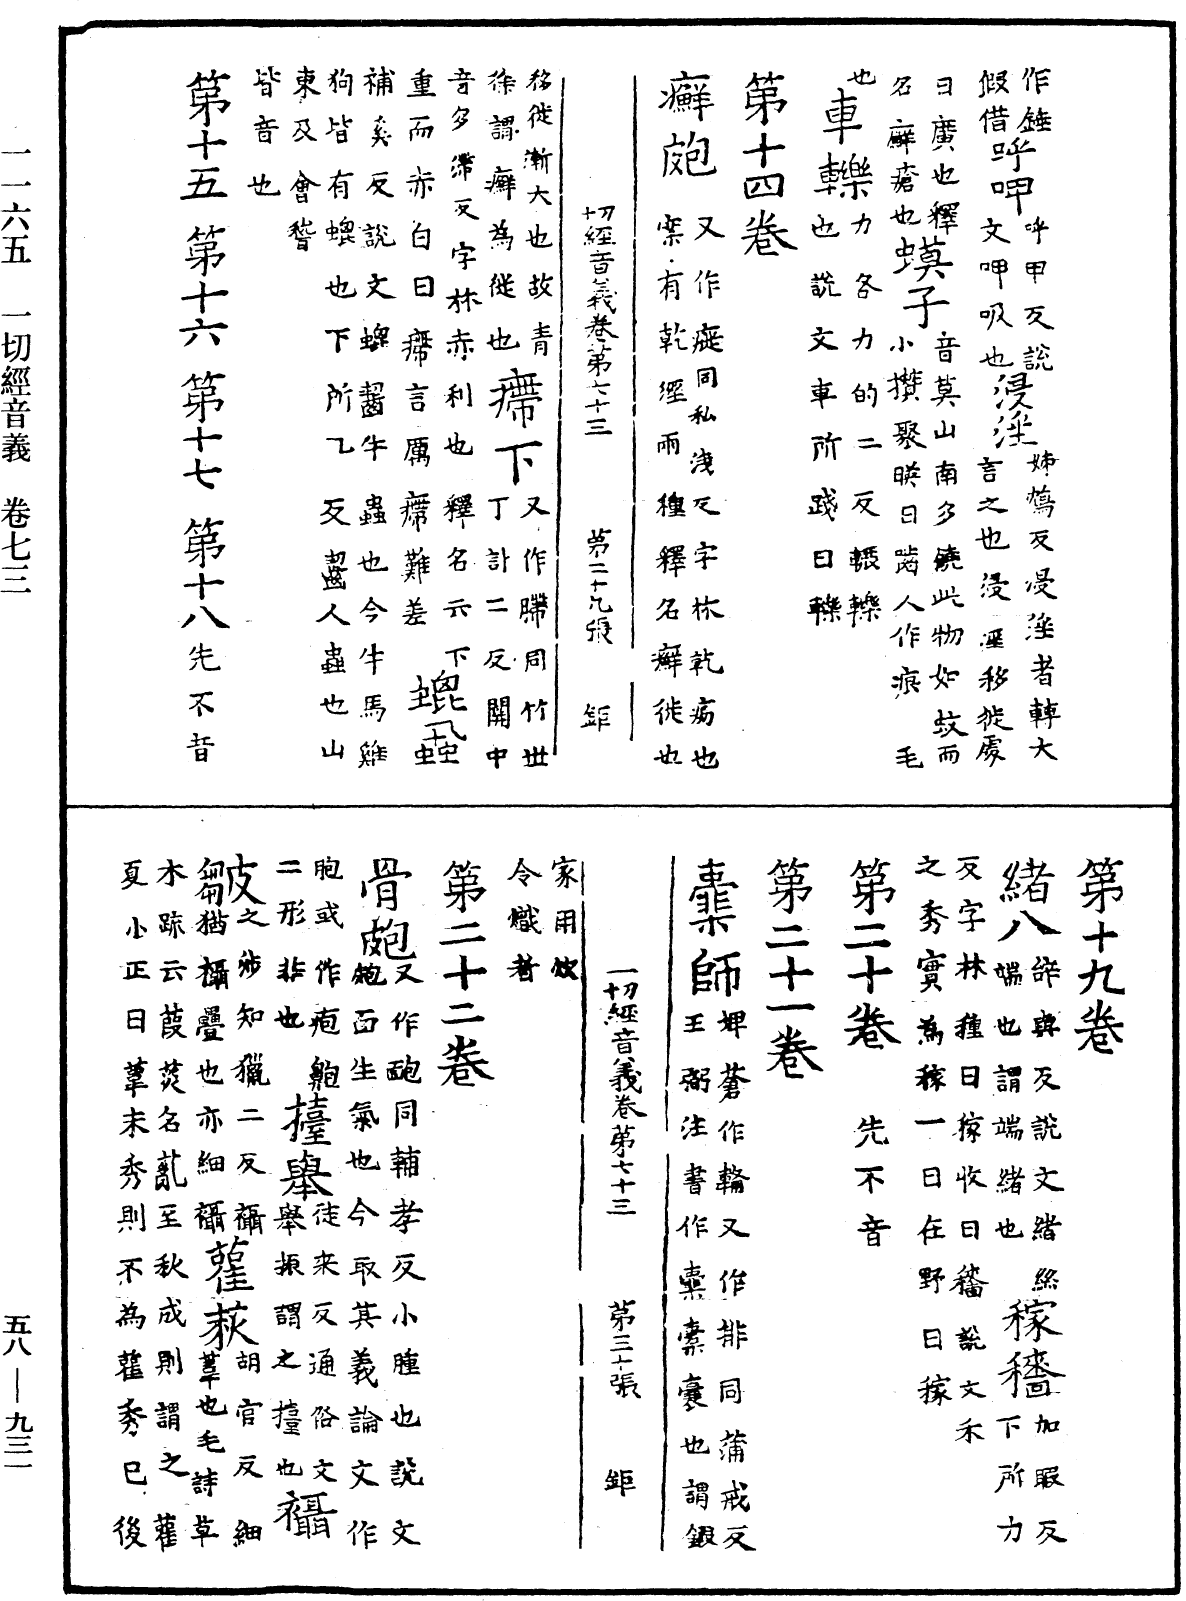 作錘
假借呼呷呼甲反說文呷吸也浸淫姊鴆反浸淫者轉大言之也浸淫移徙處
日廣也釋名癬瘡也蟆子音莫山南多饒此物如蚊而小攢聚映日齧人作痕毛
也車轢力各力的二反轢也說文車所踐曰轢
第十四卷
癬皰又作㿈同私淺反字林乾瘍也案有乾濕兩種釋名癬徙也
切經音義卷第七十三 第二十九張 鉅
移徙漸大也故青徐謂癬為徙也㿃下又作䐭同竹世丁計二反關中
音多滯反字林赤利也釋名云下重而赤白曰㿃言厲㿃難差螕虱
補奚反說文螕齧牛蟲也今牛馬雞狗皆有螕也下所乙反齧人蟲也山
東及會稽皆音也
第十五 第十六 第十七 第十八 先不音
第十九卷
緒八辞與反說文緒絲端也謂端緒也稼穡加暇反下所力
反字林種曰稼收曰穡說文禾之秀實為稼一曰在野曰稼
第二十卷 先不音
第二十一卷
橐師埤蒼作韛又作排同蒲戒反王弼注書作橐橐囊也謂鍛
家用炊令熾者
一切經音義卷第七十三 第三十張 鉅
第二十二卷
骨皰又作皰同輔孝反小腫也說文皰面生氣也今取其義論文作
胞或作疱二形非也擡舉徒來反通俗文舉振謂之擡也襵
皮之涉知獵二反襵猶摺疊也亦細襵雚荻胡官反細葦也毛詩草
木疏云葭菼名薍至秋成則謂之雚
夏小正曰葦未秀則不為雚秀已後
一一六五 一切經音義 卷七三
五八—九三一